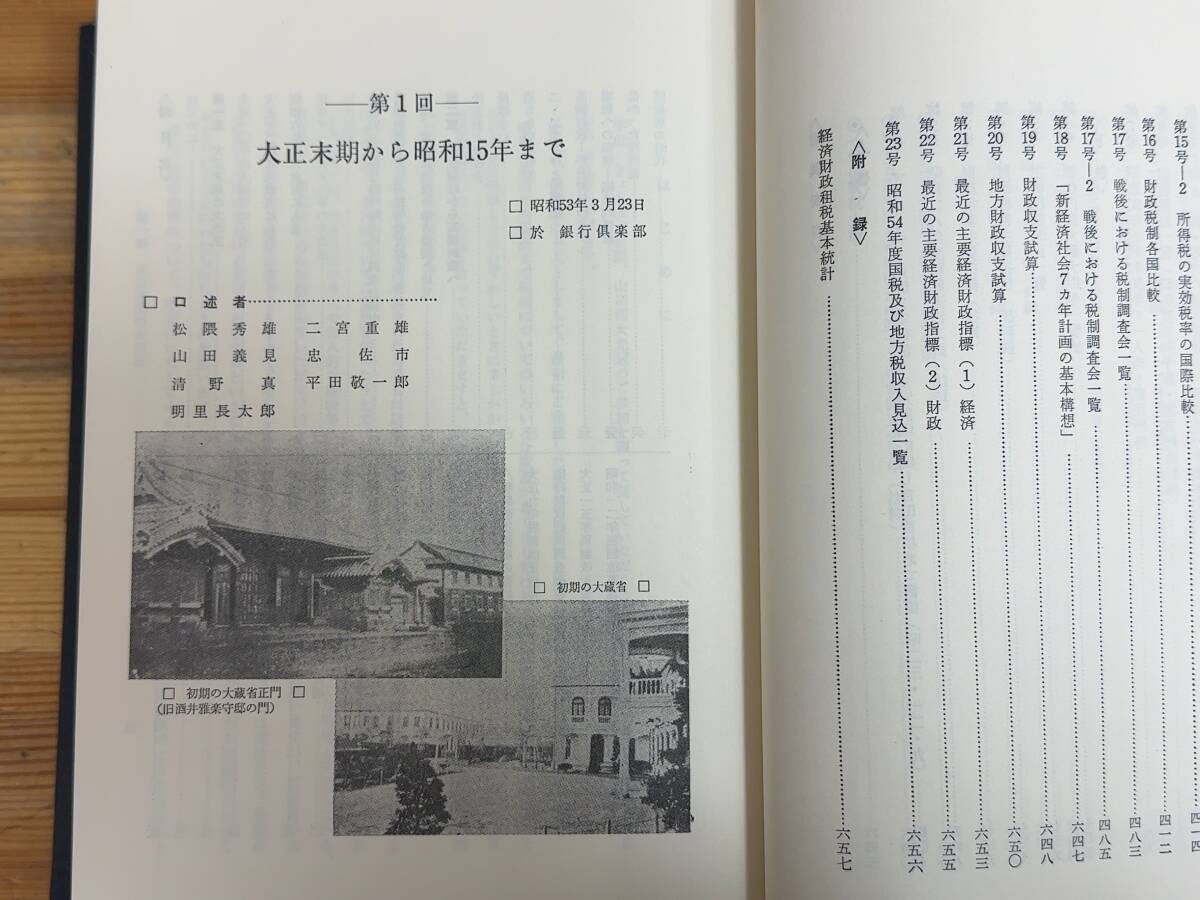 第15号―2 所得税の実効税率の国際比較
第16号 財政税制各国比較……四一二
第17号 戦後における税制調査会一覧……四八三
第17号―2 戦後における税制調査会一覧……四八五
第18号 「新経済社会7カ年計画の基本構想」……六四七
第19号 財政収支試算……六四八
第20号 地方財政収支試算……六五〇
第21号 最近の主要経済財政指標(1)経済……六五三
第22号 最近の主要経済財政指標(2)財政……六五五
第23号 昭和54年度国税及び地方税収入見込一覧……六五六
〈附 録〉
経済財政租税基本統計……六五七
――第1回――
大正末期から昭和15年まで
□ 昭和53年3月23日
□ 於 銀行倶楽部
□ 口述者……
松隈秀雄 二宮重雄
山田義見 忠佐市
清野真 平田敬一郎
明里長太郎
□ 初期の大蔵省 □
□ 初期の大蔵省正門 □
(旧酒井雅楽守邸の門)